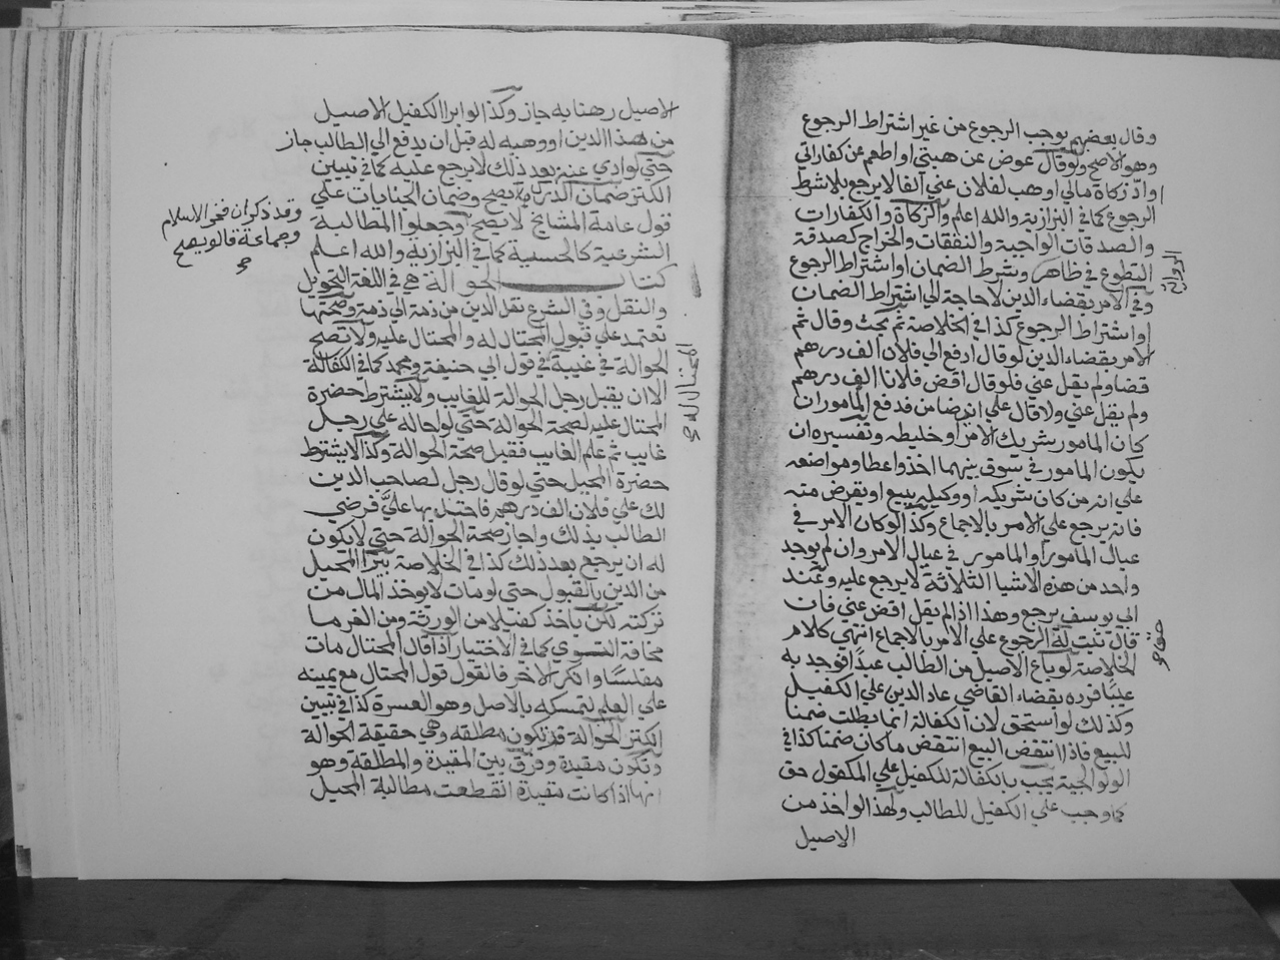 وقال بعضهم يوجب الرجوع من غير اشتراط الرجوع
وهو الاصح ولو قال عوض عن هبتي او اطعم عن كفاراتي
او ادّ زكاة مالي او هب لفلان عني الفا لا يرجع بلا شرط
الرجوع كما في البزازية والله اعلم والزكاة والكفارات
والصدقات الواجبة والنفقات والخراج كصدقة
التطوع في ظاهر وبشرط الضمان او اشتراط الرجوع
الرواية
وفي الامر بقضاء الدين لا حاجة الي اشتراط الضمان
او اشتراط الرجوع كذا في الخلاصة ثم بحث وقال ثم
الامر بقضاء الدين لو قال ادفع الي فلان الف درهم
قضا ولم يقل عني فلو قال اقض فلانا الف درهم
ولم يقل عني ولا قال علي اني ضامن فدفع المأمور ان
كان المامور شريك الامر او خليطه وتفسيره ان
يكون المامور في سوق بينهما اخذ واعطا ومواضعه
علي انه من كان شريكه او وكيله يبيع او يقرض منه
فانه يرجع علي الامر بالاجماع وكذا لو كان الامر في
عيال المامور او المامور في عيال الامر وان لم يوجد
واحد من هذه الاشيا الثلاثة لا يرجع عليه وعند
ابي يوسف يرجع وهذا اذا لم يقل اقض عني فان
قال تثبت له الرجوع علي الامر بالاجماع انتهي كلام
حق
الخلاصة لو باع الاصيل من الطالب عبدا فوجد به
عيبا فرده بقضاء القاضي عاد الدين علي الكفيل
وكذلك لو استحق لان الكفالة انما بطلت ضمنا
للبيع فاذا انتقض البيع انتقض ما كان ضمنا كذا في
الولوالجية يجب بالكفالة للكفيل علي المكفول حق
كما وجب علي الكفيل للطالب ولهذا لو اخذ من
الاصيل
الاصيل رهنا به جاز وكذا لو ابرا الكفيل الاصيل
من هذا الدين او وهبه له قبل ان يدفع الي الطالب جاز
حتي لو ادي عنه بعد ذلك لا يرجع عليه كما في تبيين
الكنز ضمان الدرك يصح وضمان الجنايات علي
قول عامة المشايخ لا يصح وجعلوا المطالبة
وقد ذكر ان فخر الاسلام
وجماعة قالو يصح
الشرعية كالحسية كما في البزازية والله اعلم
كتاب الحوالة هي في اللغة التحويل
والنقل وفي الشرع نقل الدين من ذمة الي ذمة وصحتها
تعتمد علي قبول المحتال له والمحتال عليه ولا تصح
الحوالة في غيبة في قول ابي حنيفة ومحمد كما في الكفالة
المحتال له
الا ان يقبل رجل الحوالة للغايب ولا يشترط حضرة
المحتال عليه لصحة الحوالة حتي لو احاله علي رجل
غايب ثم علم الغايب فقبل صحة الحوالة وكذا لا يشترط
حضرة المحيل حتي لو قال رجل لصاحب الدين
لك علي فلان الف درهم فاحتل بها عليّ فرضي
الطالب بذلك واجاز صحة الحوالة حتي لا يكون
له ان يرجع بعد ذلك كذا في الخلاصة يبرا المحيل
من الدين بالقبول حتي لو مات لا يوخذ المال من
تركته لكن ياخذ كفيلا من الورثة ومن الغرما
مخافة التوي كما في الاختيار اذا قال المحتال مات
مفلسا وانكر الاخر فالقول قول المحتال مع يمينه
علي العلم لتمسكه بالاصل وهو العسرة كذا في تبيين
الكنز الحوالة قد تكون مطلقه وهي حقيقة الحوالة
وتكون مقيدة وفرق بين المقيدة والمطلقة وهو
انها اذا كانت مقيدة انقطعت مطالبة المحيل